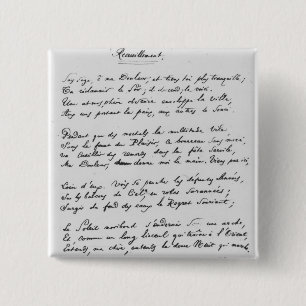 Recueillement.
Sois sage, ô ma Douleur, et tiens toi plus tranquille ;
Tu réclamais le Soir ; il descend ; le voici.
Une atmosphère obscure enveloppe la ville,
Aux uns portant la paix, aux autres le Souci.
Pendant que des mortels la multitude vile
Sous le fouet du Plaisir, ce bourreau sans merci,
Va cueillir des remords dans la fête servile,
Ma Douleur, donne moi la main. Viens par ici,
Loin d'eux. Vois se pencher les défuntes Années,
Sur les balcons du Ciel, en robes Surannées ;
Surgir du fond des eaux le Regret Souriant ;
Le Soleil moribond s'endormir sous une arche,
Et comme un long linceul qui traîne à l'Orient,
Entends, ma chère, entends la douce Nuit qui